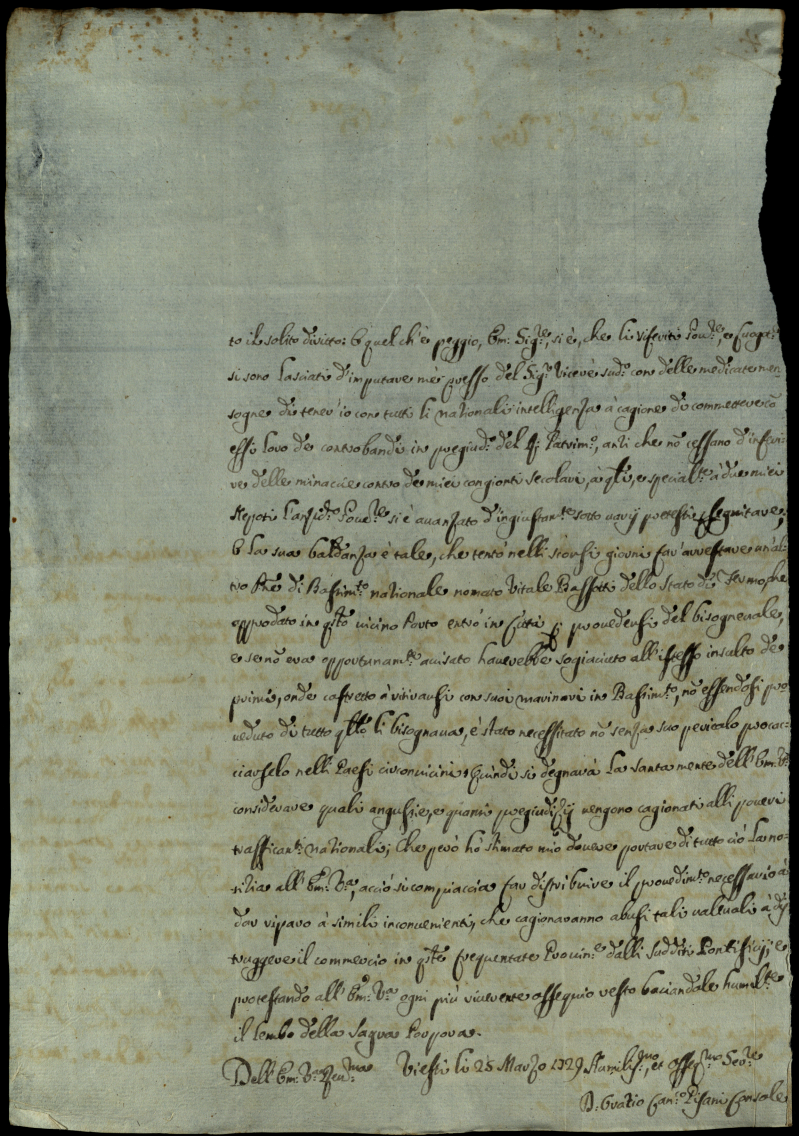 to il solito diritto: E quel ch'è peggio, Em: Sig:re, si è, che li riferiti Gov:re, e
si sono lasciati d'imputare mè presso del Sig:r Vicerè sud:o con delle medicate men-
sogne di tener'io con tutti li nationali intelligenza à cagione di commettere cō
essi loro de controbandi in pregiud:o del Patrim:o, anzi che nō cessano d'inferi-
re delle minaccie contro de miei congionti secolari, à q̄li, e special:te à due miei
Nepoti Gov:re si è avanzato d'ingiustam:te sotto varij pretesti
E la sua baldanza è tale, che tentò nelli scorsi giorni far' arrestare un'al-
tro Pñe di Bastim:to nationale nomato Vitale Bassotti dello stato di Fermo, che
approdato in q̄sto vicino Porto entrò in Città p provedersi del bisognevale,
e se nō era opportunam:te avisato haverebbe sogiaciuto all'istesso insulto de
primi, onde costretto à ritirarsi con suoi marinari in Bastim:to, nō essendosi pro
veduto di tutto q̄llo li bisognava, è stato necessitato nō senza suo pericolo procac-
ciarselo nelli Paesi circonvicini. Quindi si degnarà la santa mente dell'Em: V:a
considerare quali angustie, e quanti pregiudizij vengono cagionati alli poveri
trafficanti nationali; Che però hò stimato mio dovere portare di tutto ciò la no-
titia all'Em: V:a, acciò si compiaccia far distribuire il provedim:to necessario à
dar riparo à simili inconvenienti, che cagionaranno abusi tali valevoli à dis
truggere il commercio in q̄ste frequentate Provin:e dalli sudditi Pontificij, e
protestando all'Em: V:a ogni più riverente ossequio resto baciandole humil:te
il lembo della Sagra Porpora.
Dell'Em: V:a Rev:ma Viesti li 25 Marzo 1729 Humiliss:mo, et osseq:mo Ser:re
D: Oratio Can:co Pisani Console